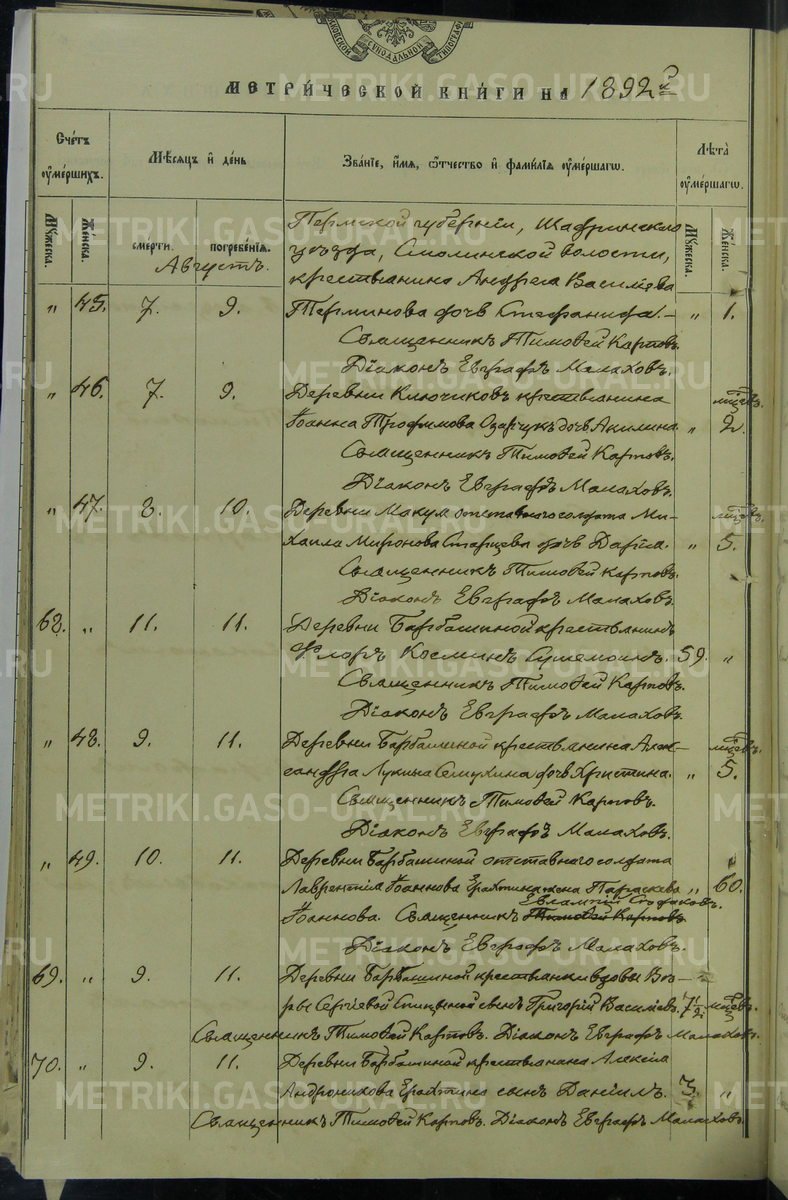 МЕТРИ́ЧЕСКОЙ КНИ́ГИ НА 1892 г.
Сче́тъ ᲂу҆ме́ршихъ.
Мѣ́сяцъ и҆ де́нь
Зва́нїе, и҆́мя, ѻ҆́тчество и҆ фами́лїя ᲂу҆ме́ршагѡ.
Лѣ́та ᲂу҆ме́ршагѡ.
Му́жеска.
Же́нска.
сме́рти.
погребе́нїя.
Му́жеска.
Же́нска.
Августъ.
Пермской губерніи, Шадринскаго
уѣзда, Смолинской волости,
крестьянина Андрея Васильева
" 45. 7. 9. Терминова дочь Стефанида. " 1.
Священникъ Тимоѳей Карповъ.
Діаконъ Евграфъ Малаховъ.
" 46. 7. 9. Деревни Ключиковъ крестьянина мѣсяцев.
Іоанна Трофимова дочь Акилина " 2.
Священникъ Тимоѳей Карповъ.
Діаконъ Евграфъ Малаховъ.
" 47. 8. 10. Деревни Макуш отставного солдата Ми- мѣсяцев.
хаила Миронова Старцева дочь Дарія. " 5.
Священникъ Тимоѳей Карповъ.
Діаконъ Евграфъ Малаховъ.
68. " 11. 11. Деревни Барбашиной крестьянинъ
Флоръ Косминъ 59. "
Священникъ Тимоѳей Карповъ.
Діаконъ Евграфъ Малаховъ.
" 48. 9. 11. Деревни Барбашиной крестьянина Алек- мѣсяцев.
сандра Лукина Семухина дочь Христина. " 5.
Священникъ Тимоѳей Карповъ.
Діаконъ Евграфъ Малаховъ.
" 49. 10. 11. Деревни Барбашиной отставного солдата
Лаврентія Іоаннова Ерахтина жена Параскева " 60.
Евлампій
Іоаннова. Священникъ Тимоѳей Карповъ
Діаконъ Евграфъ Малаховъ.
69. " 9. 11. Деревни Барбашиной крестьянки вдовы
Сергіевой Спицыной сынъ Григорій Васильевъ. 7 1/2 мѣсяцев.
Священникъ Тимоѳей Карповъ. Діаконъ Евграфъ Малаховъ.
70. " 9. 11. Деревни Барбашиной крестьянина Алексія
Андроникова Ерахтина сынъ Даніилъ. 3. "
Священникъ Тимоѳей Карповъ. Діаконъ Евграфъ Малаховъ.
METRIKI.GASO-URAL.RU